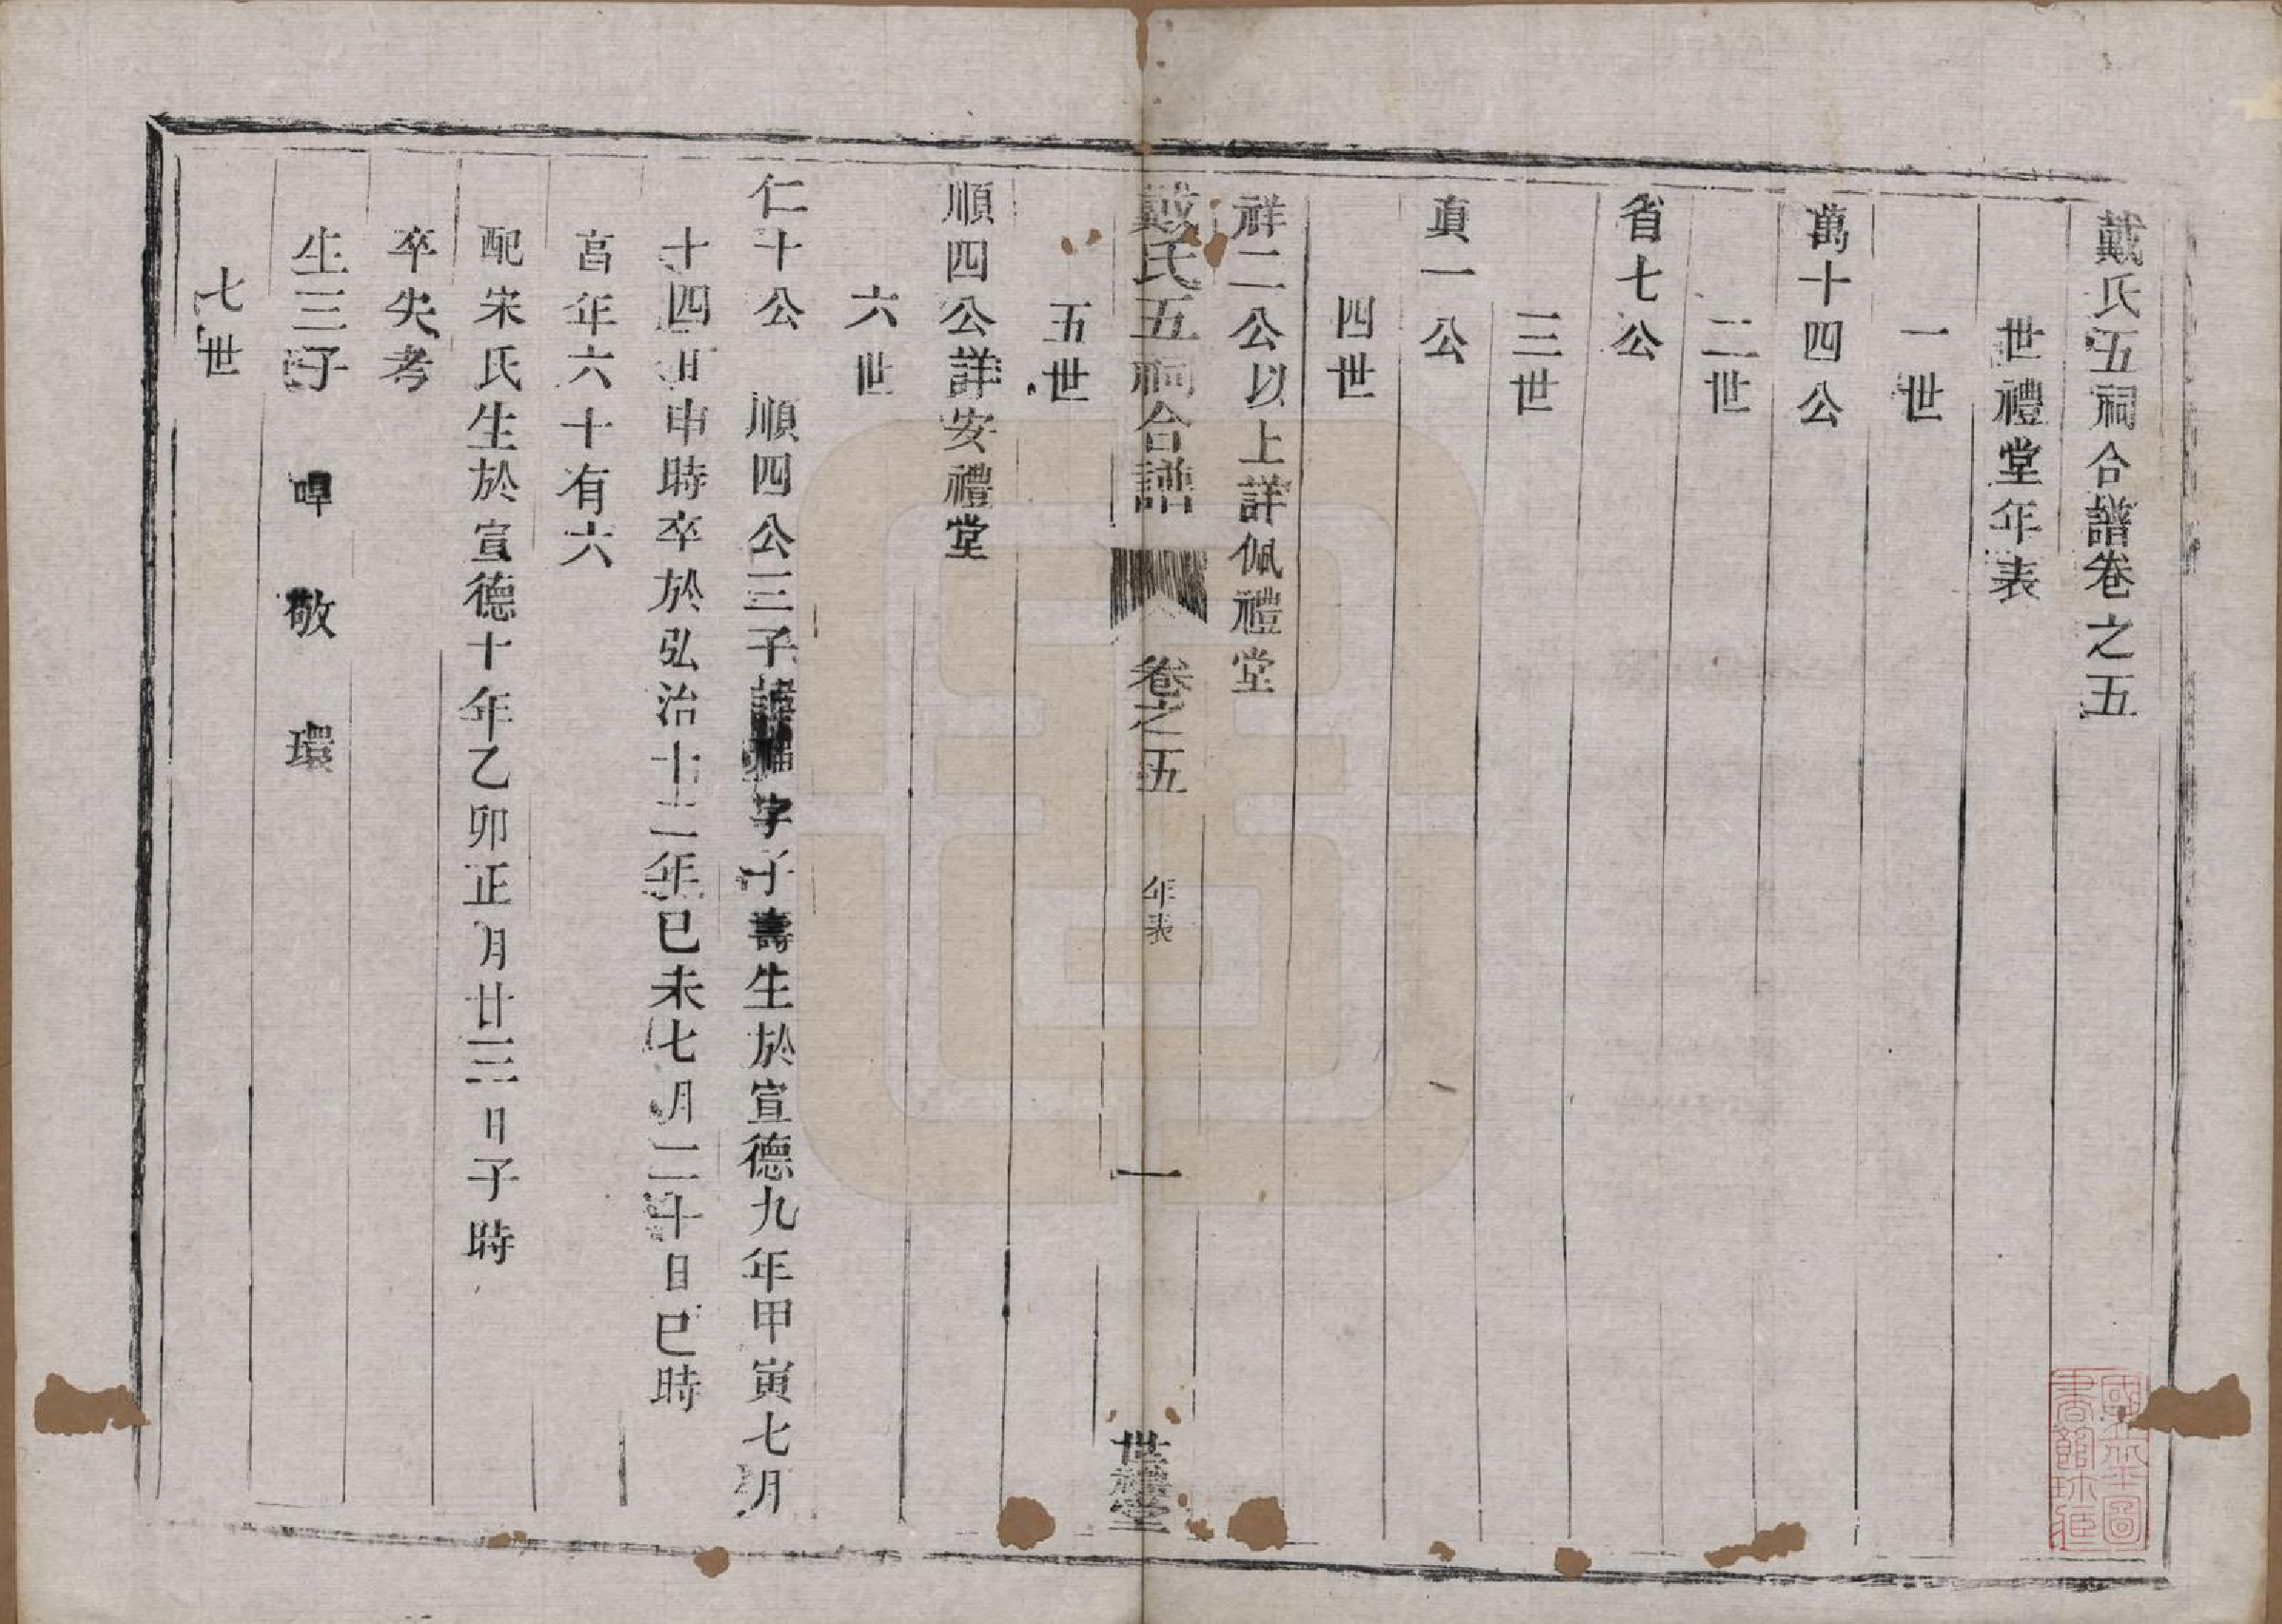 戴氏五祠合譜卷之五
世禮堂年表
一世
萬十四公
二世
省七公
三世
眞一公
四世
祥二公以上詳佩禮堂
戴氏五祠合譜 卷之五 年表 一 世禮堂
五世
順四公詳安禮堂
六世
仁十公 順四公三子諱福字子壽生於宣德九年甲寅七月
十四日申時卒於弘治十二年已未七月二十日巳時
亯年六十有六
配宋氏生於宣德十年乙卯正月廿三日子時
卒失考
生三子 敬 環
七世
國立北平圖書館珍藏